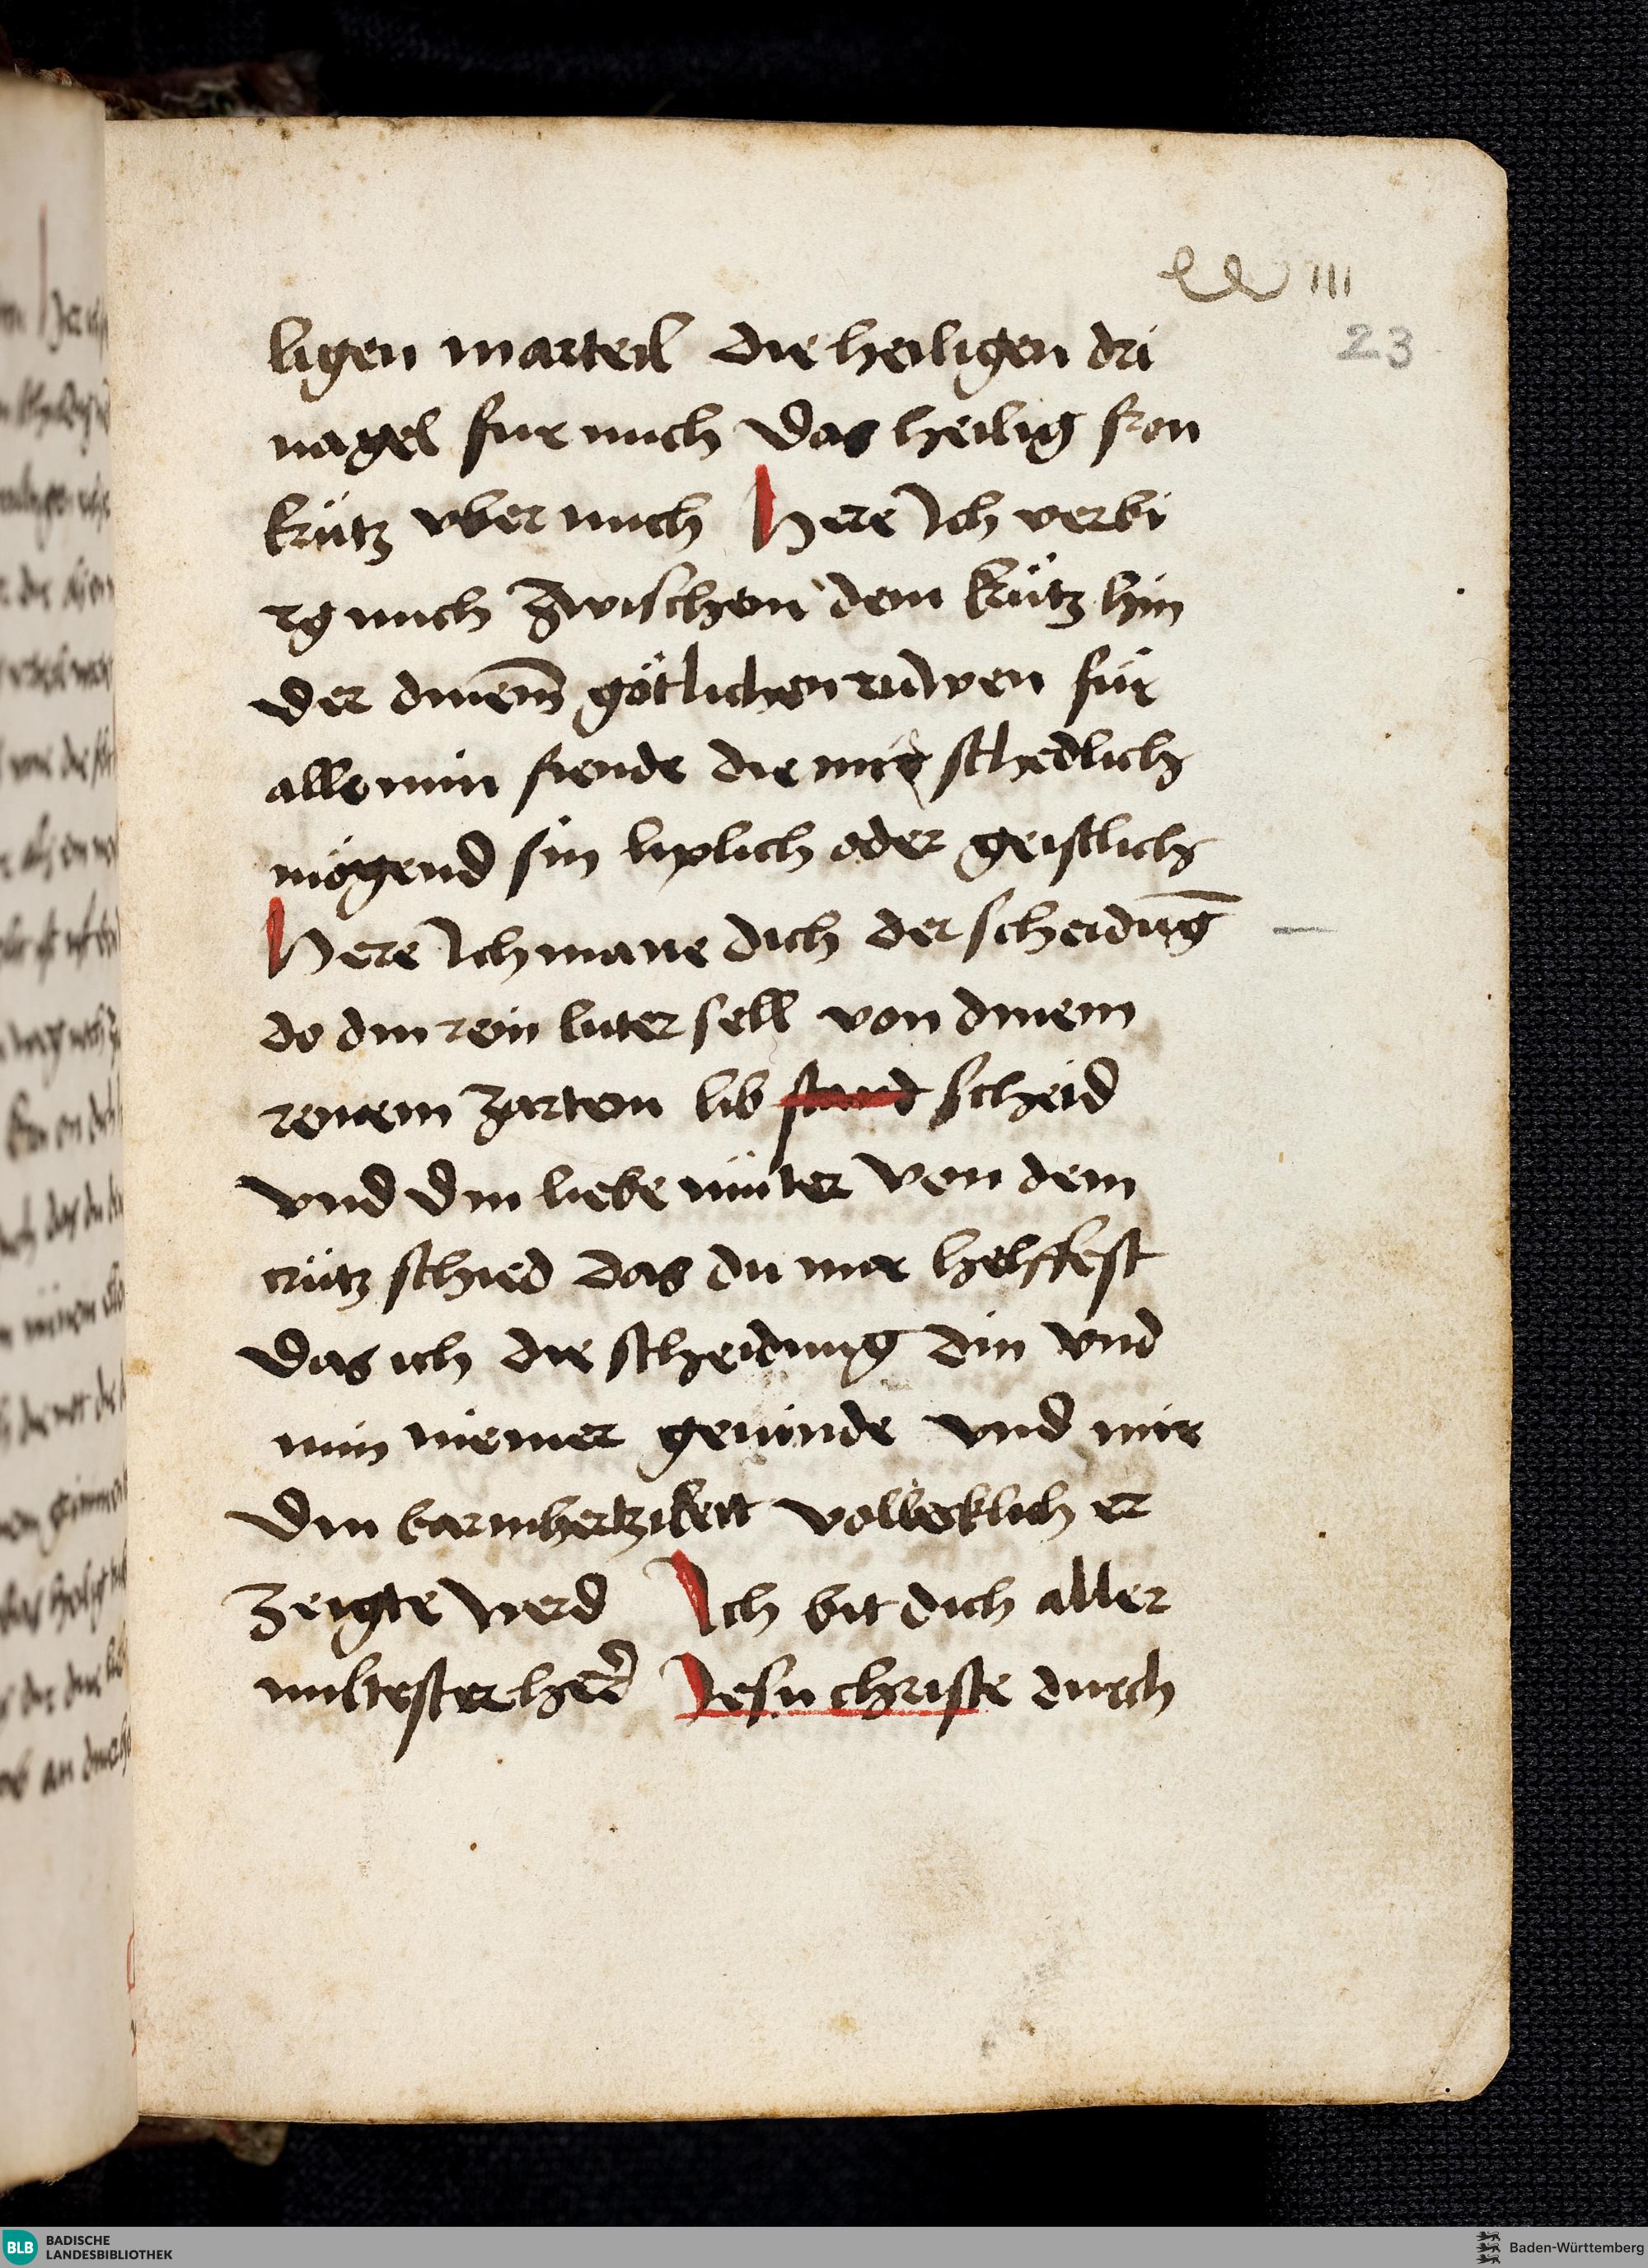 xxiii
23
ligen marteil die heiligen dri
nagel fur mich das heilig fron
krütz vber mich Here Ich verbi
rg mich zwischem dem krütz hin
der dinem̄ götlichen ruwen für
alle min fiende die mir schedlich
mögend sin liplich oder geistlich
Here Ich mane dich der scheidūg
do din rein luter sell von dinem
reinem zartem lib scheid
vnd din liebe müter von dem
crütz schied das du mir helffest
das ich die scheidung din vnd
min niemer gewinde vnd mir
din barmhertzikeit volleclich er
zeigte werd Ich bit dich aller
miltester here Jesu christe durch
BLB BADISCHE
LANDESBIBLIOTHEK
Baden-Württemberg